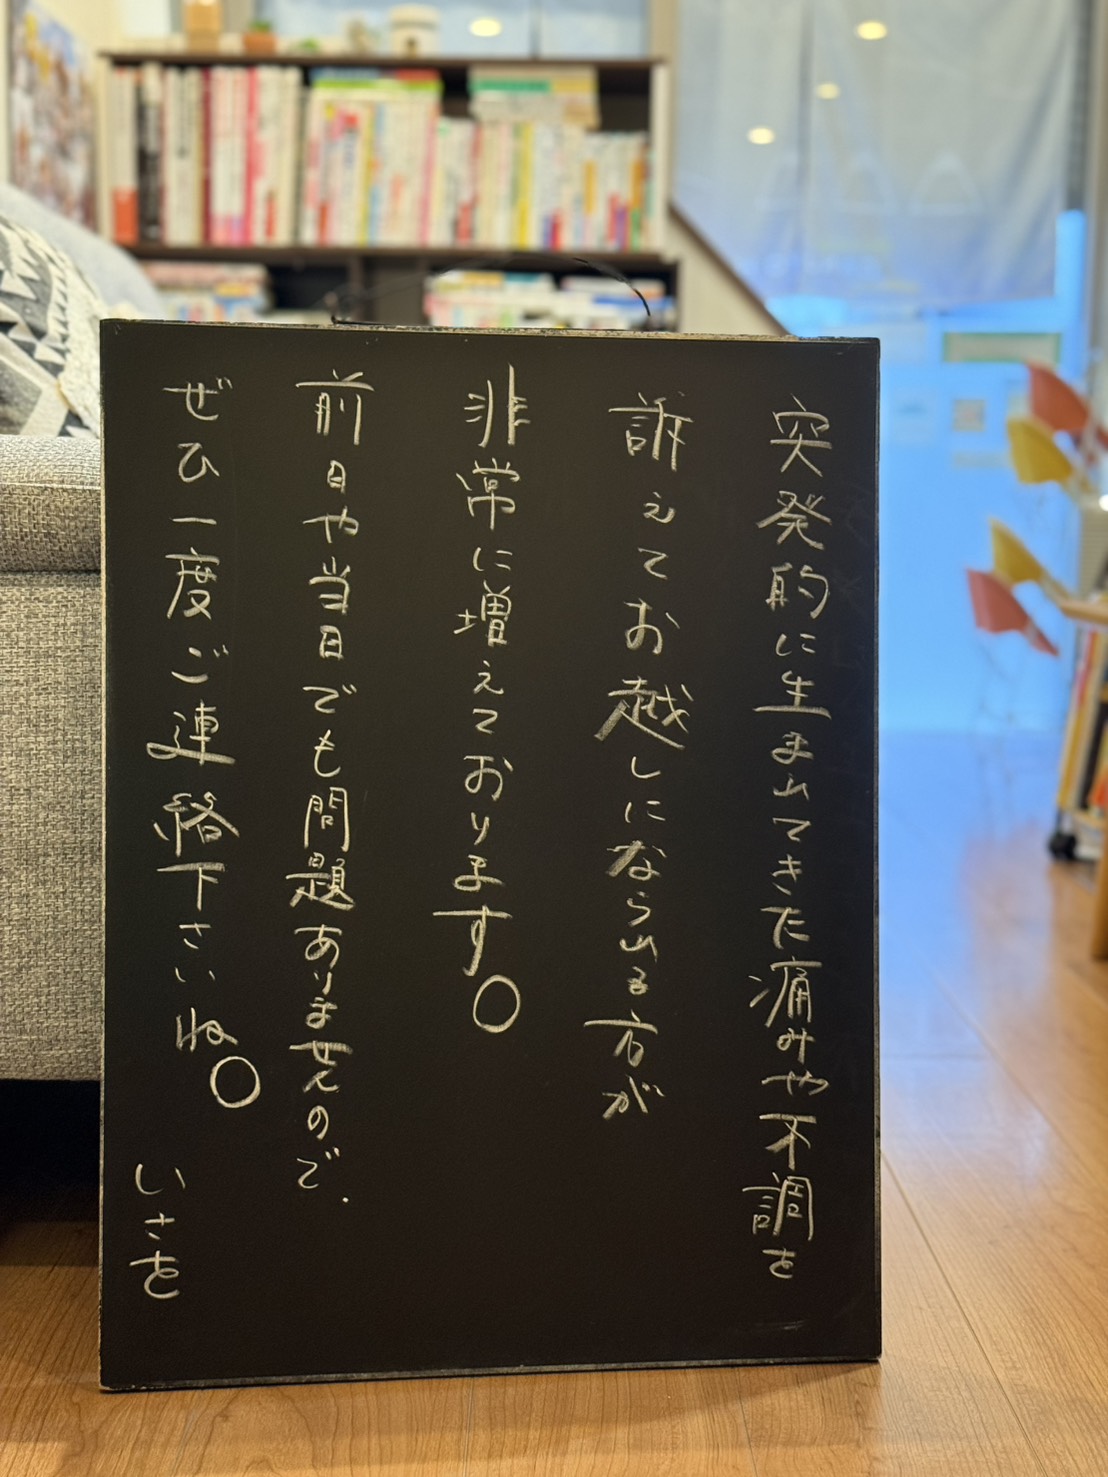 突発的に生まれてきた痛みや不調を
訴えてお越しになられる方が
非常に増えております。
前日や当日でも問題ありませんので、
ぜひ一度ご連絡下さいね。
いさを